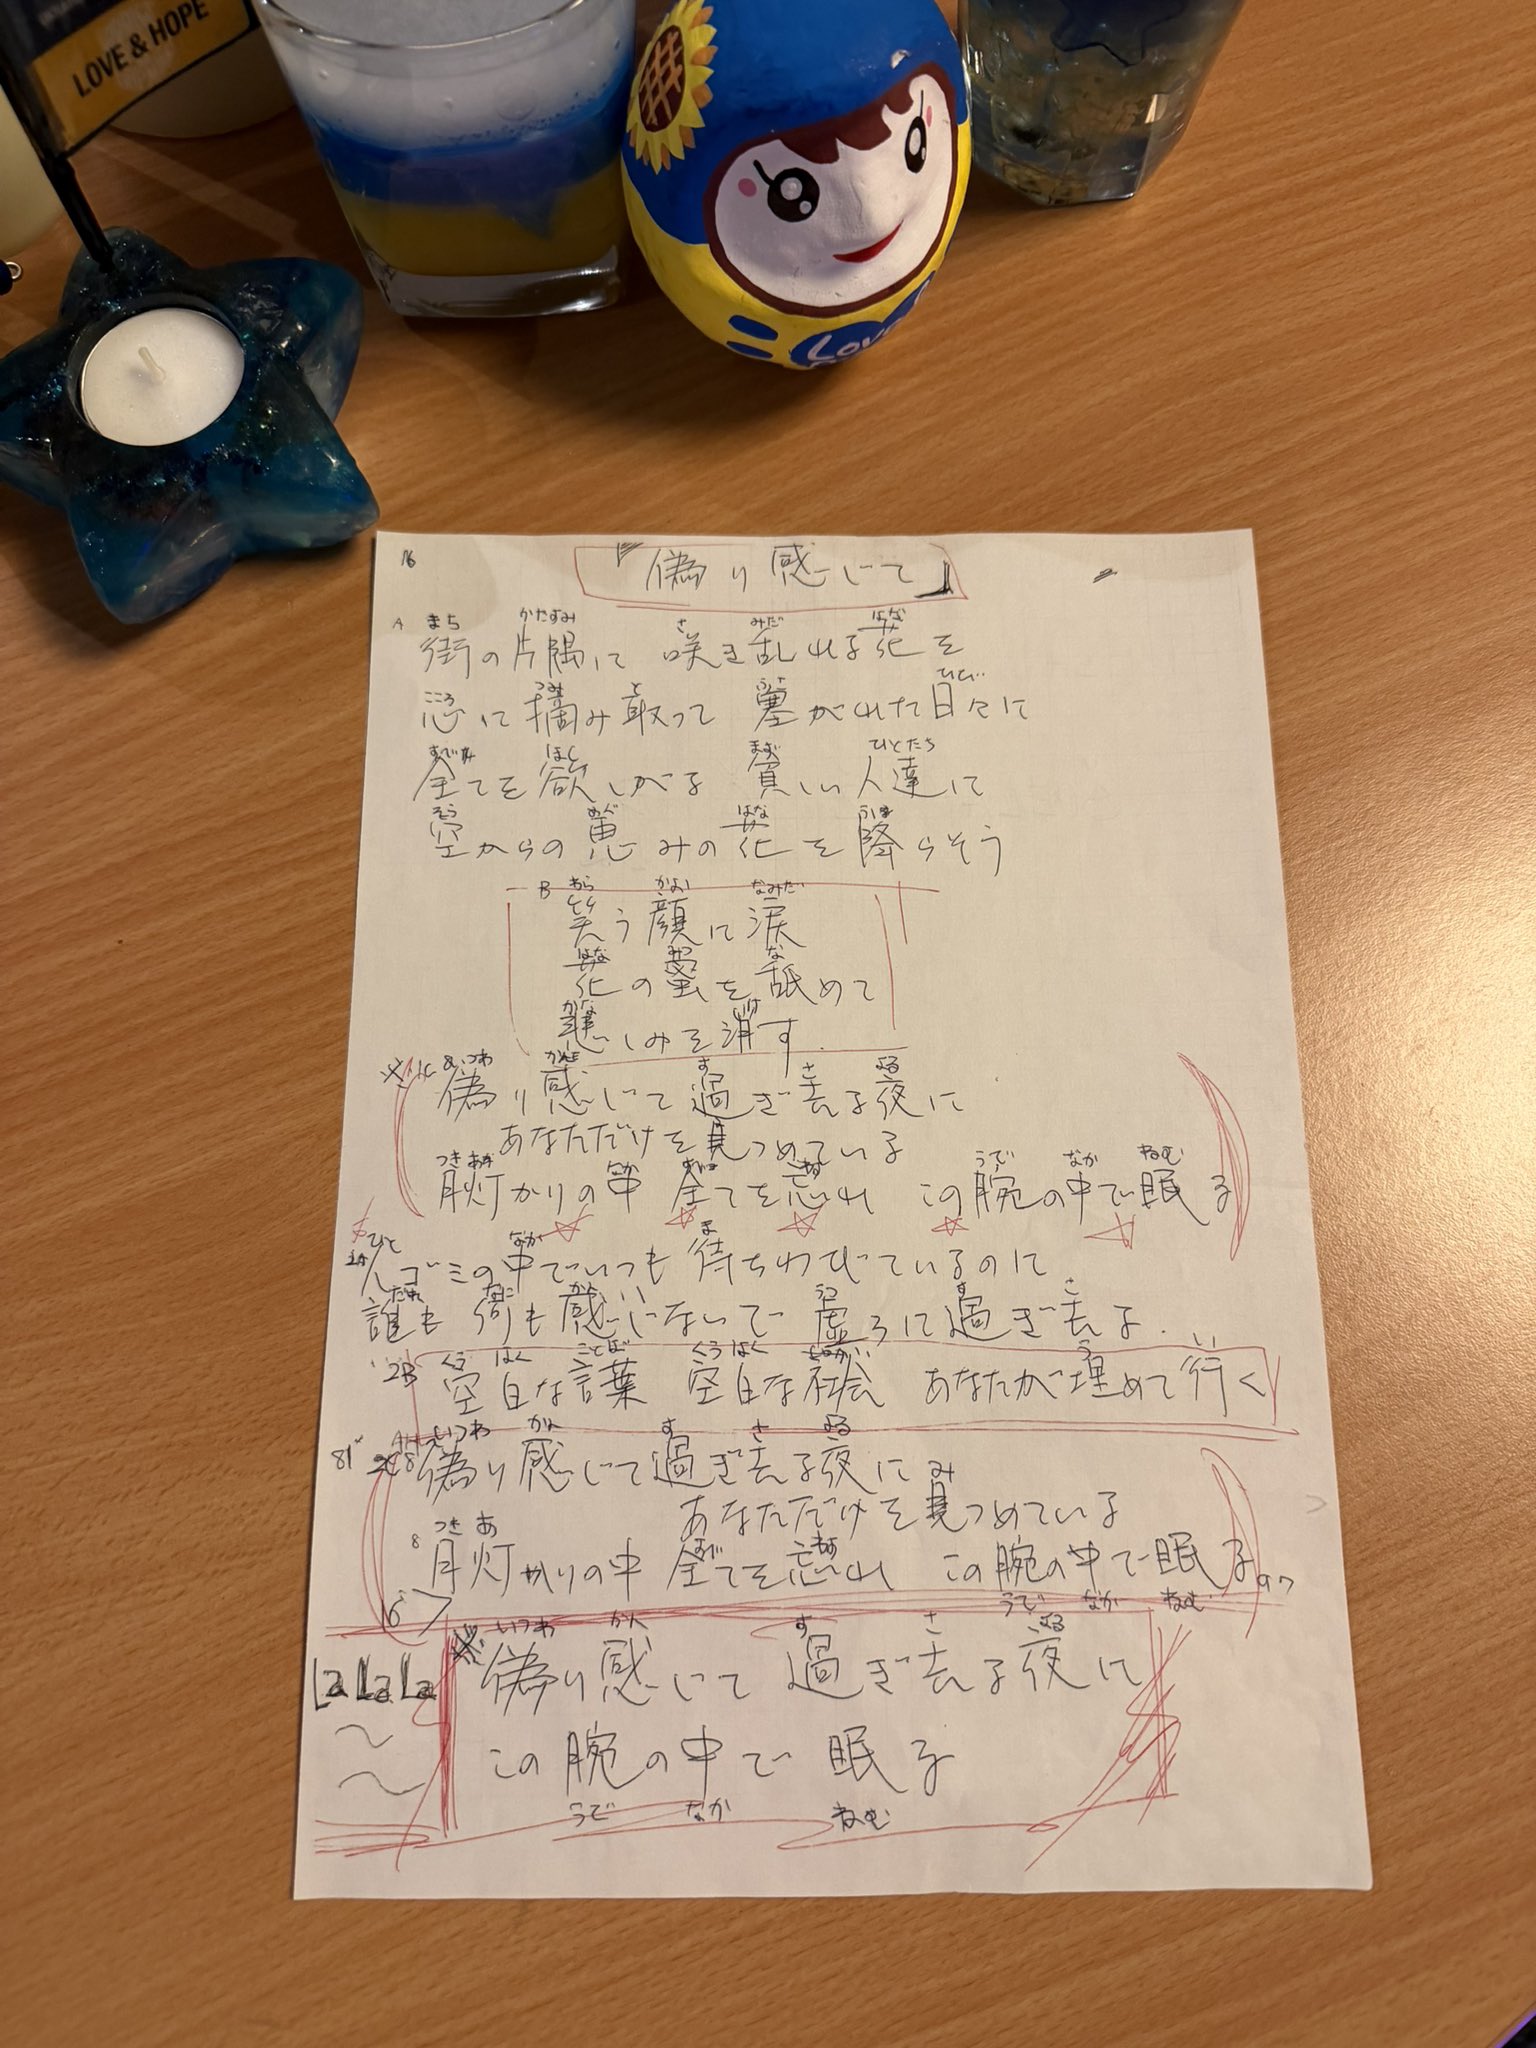 LOVE & HOPE
Love
16
『偽り感じて』
A まち かたすみ さ みだ はな
街の片隅に 咲き乱れる花を
こころ つみ と ふさ ひび
恣に摘み取って 塞がれた日々に
すべ ほし まず ひとたち
全てを欲しがる 貧しい人達に
そら めぐ はな
空からの恵みの花を降らそう
B わら かお なみだ
笑う顔に涙
はな みつ な
花の蜜を舐めて
かな
悲しみを消す
いつわ かん す さ よる
偽り感じて過ぎ去る夜に
あなただけを見つめている
つき あか なか すべ わす うで なか ねむ
月灯かりの中 全てを忘れ この腕の中で眠る
ひと なか ま
2A 人ゴミの中でいつも待ちわびているのに
だれ なに かん うつ す さ
誰も何も感じないで虚ろに過ぎ去る
2B くう はく ことば くう はく う い
空白な言葉 空白な社会 あなたが埋めて行く
いつわ かん す さ よる
偽り感じて過ぎ去る夜に
み
あなただけを見つめている
つき あ
8 月灯かりの中 全てを忘れ この腕の中で眠る
うで なか ねむ
16
いつわ かん す さ よる
偽り感じて 過ぎ去る夜に
LaLaLa
この腕の中で 眠る
うで なか ねむ